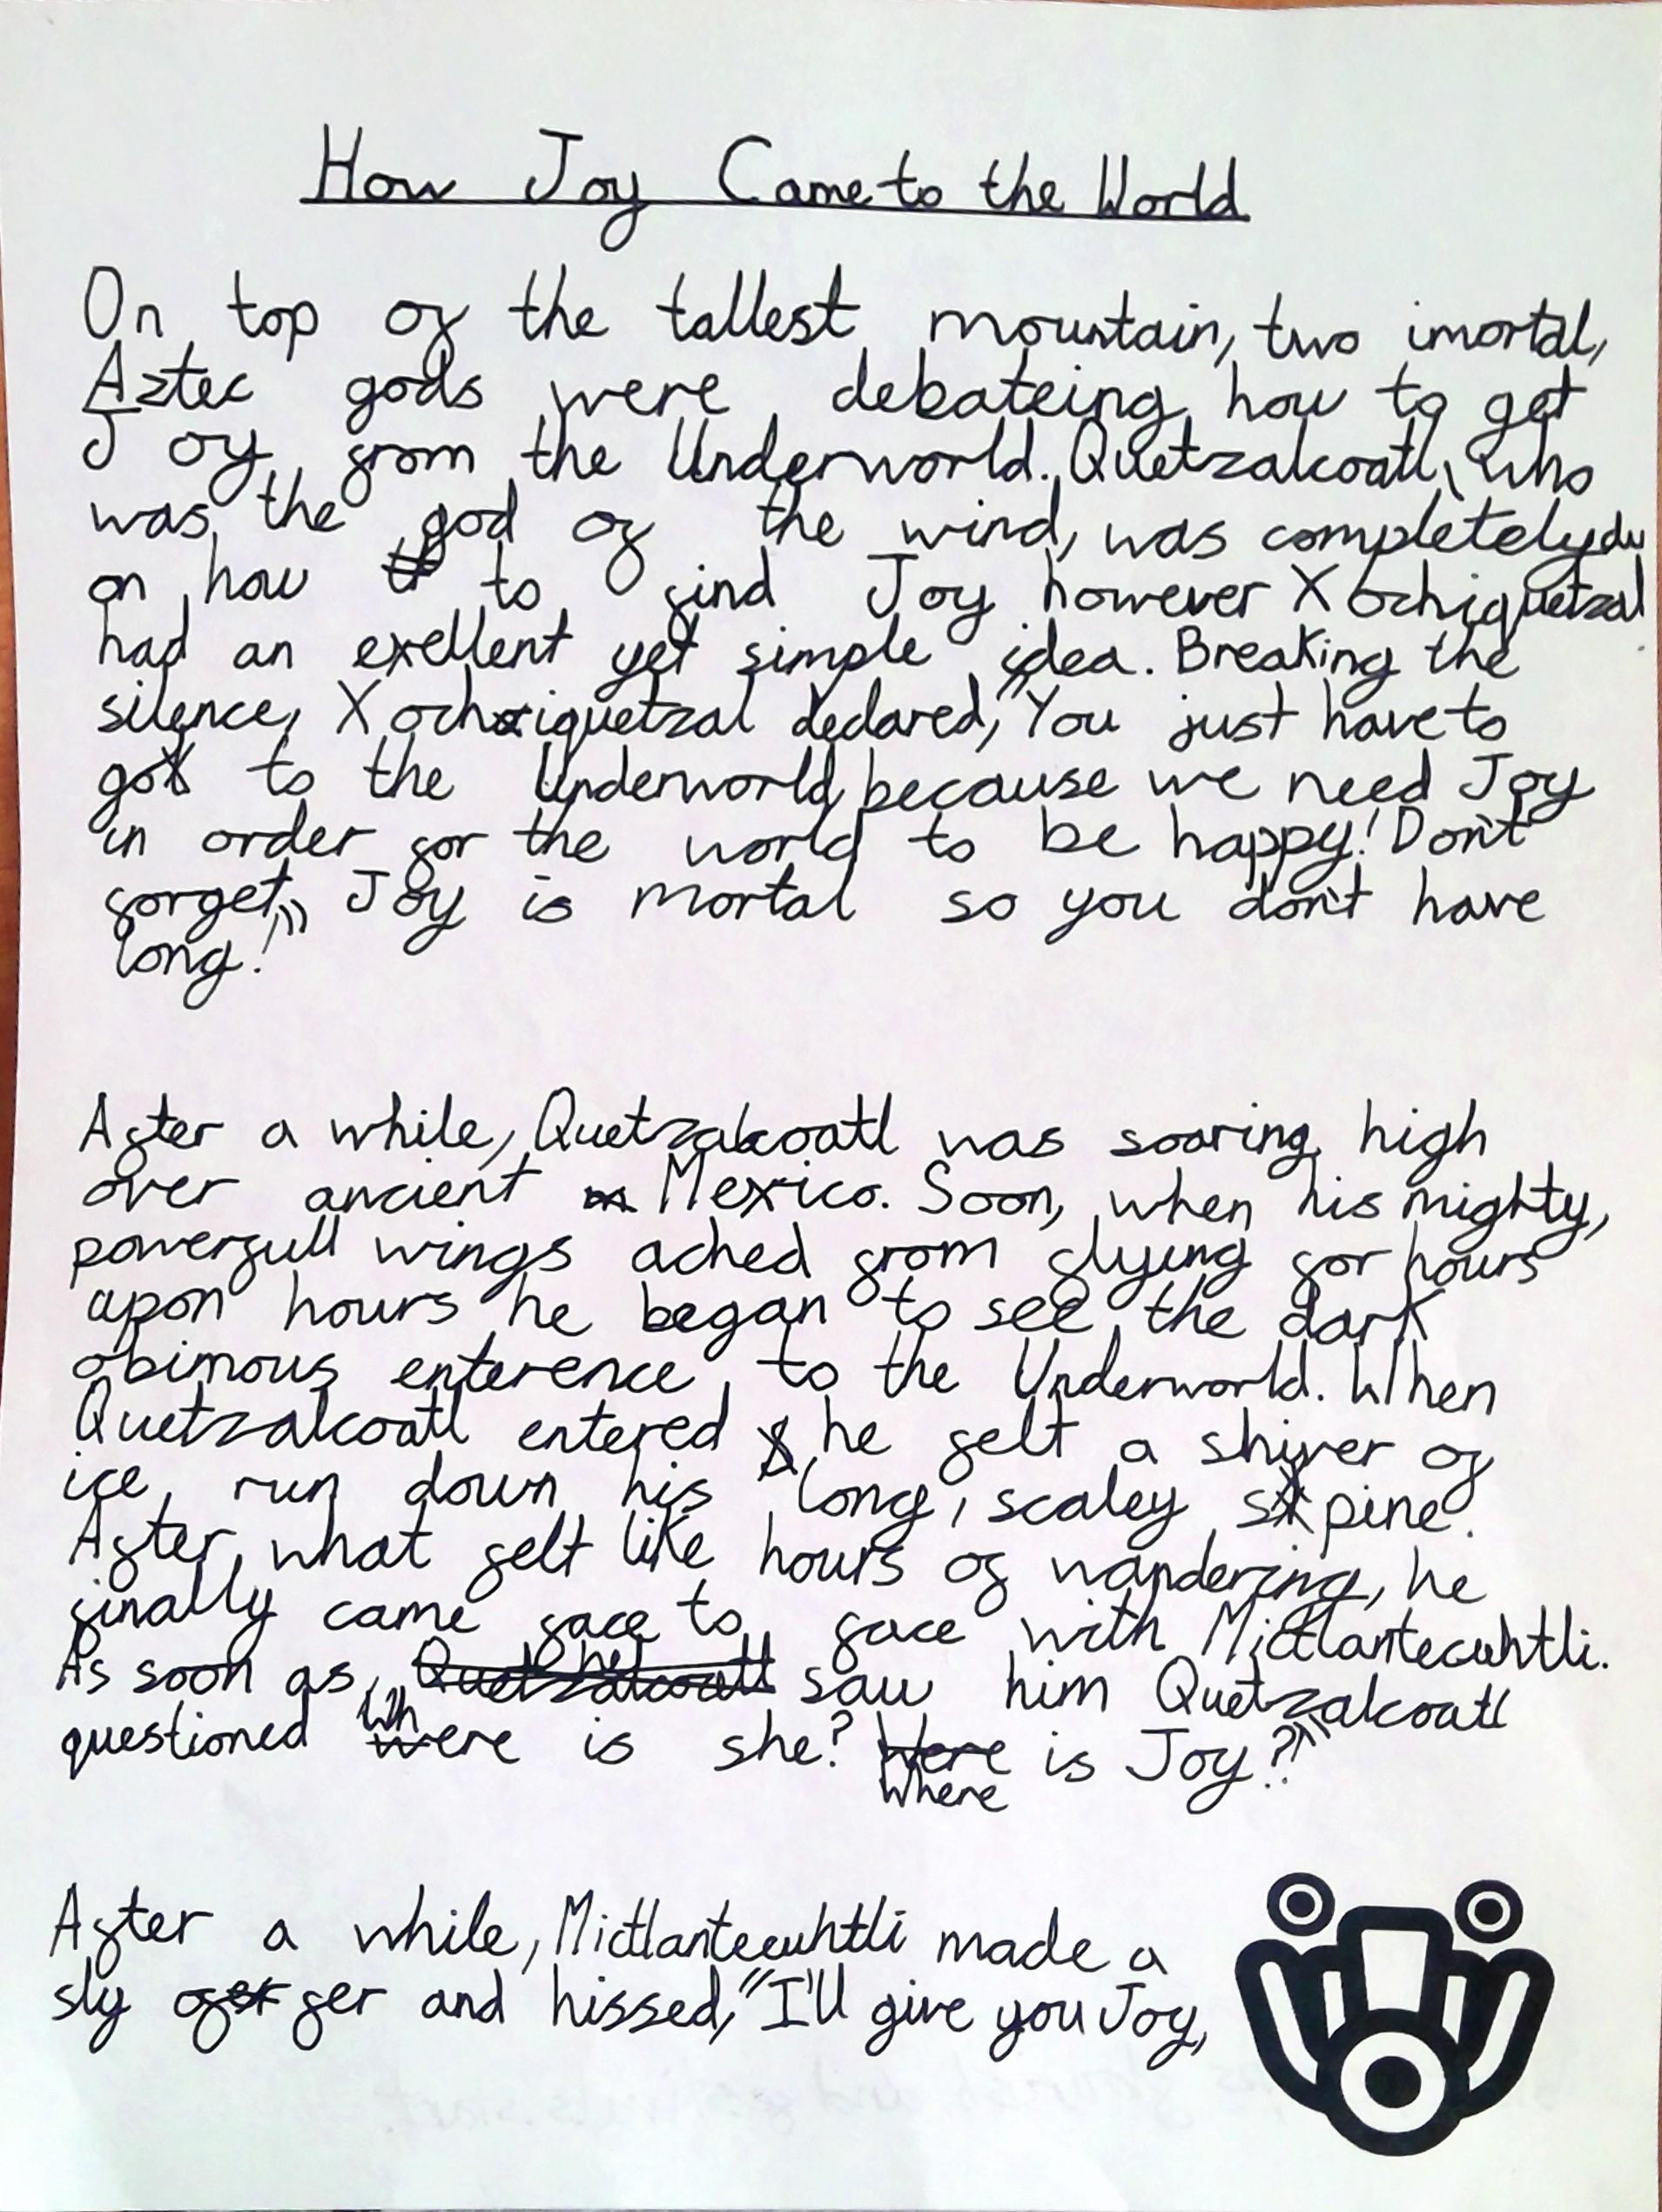 How Joy Came to the World
On top of the tallest mountain, two imortal,
Aztec gods were debateing how to get
Joy from the Underworld. Quetzalcoatl, who
was the god of the wind, was completely du
on how to find Joy however Xochiquetzal
had an exellent yet simple idea. Breaking the
silence, Xochiquetzal declared, "You just have to
go to the Underworld, because we need Joy
in order for the world to be happy! Don't
forget, Joy is mortal so you don't have
long!"
After a while, Quetzalcoatl was soaring high
over ancient Mexico. Soon, when his mighty,
powerfull wings ached from flying for hours
upon hours he began to see the dark
obimous enterence to the Underworld. When
Quetzalcoatl entered he felt a shiver of
ice run down his long, scaley spine.
After what felt like hours of wandering, he
finally came face to face with Mictlantecuhtli.
As soon as he saw him Quetzalcoatl
questioned "Where is she? Where is Joy?"
After a while, Mictlantecuhtli made a
sly offer and hissed, "I'll give you Joy,